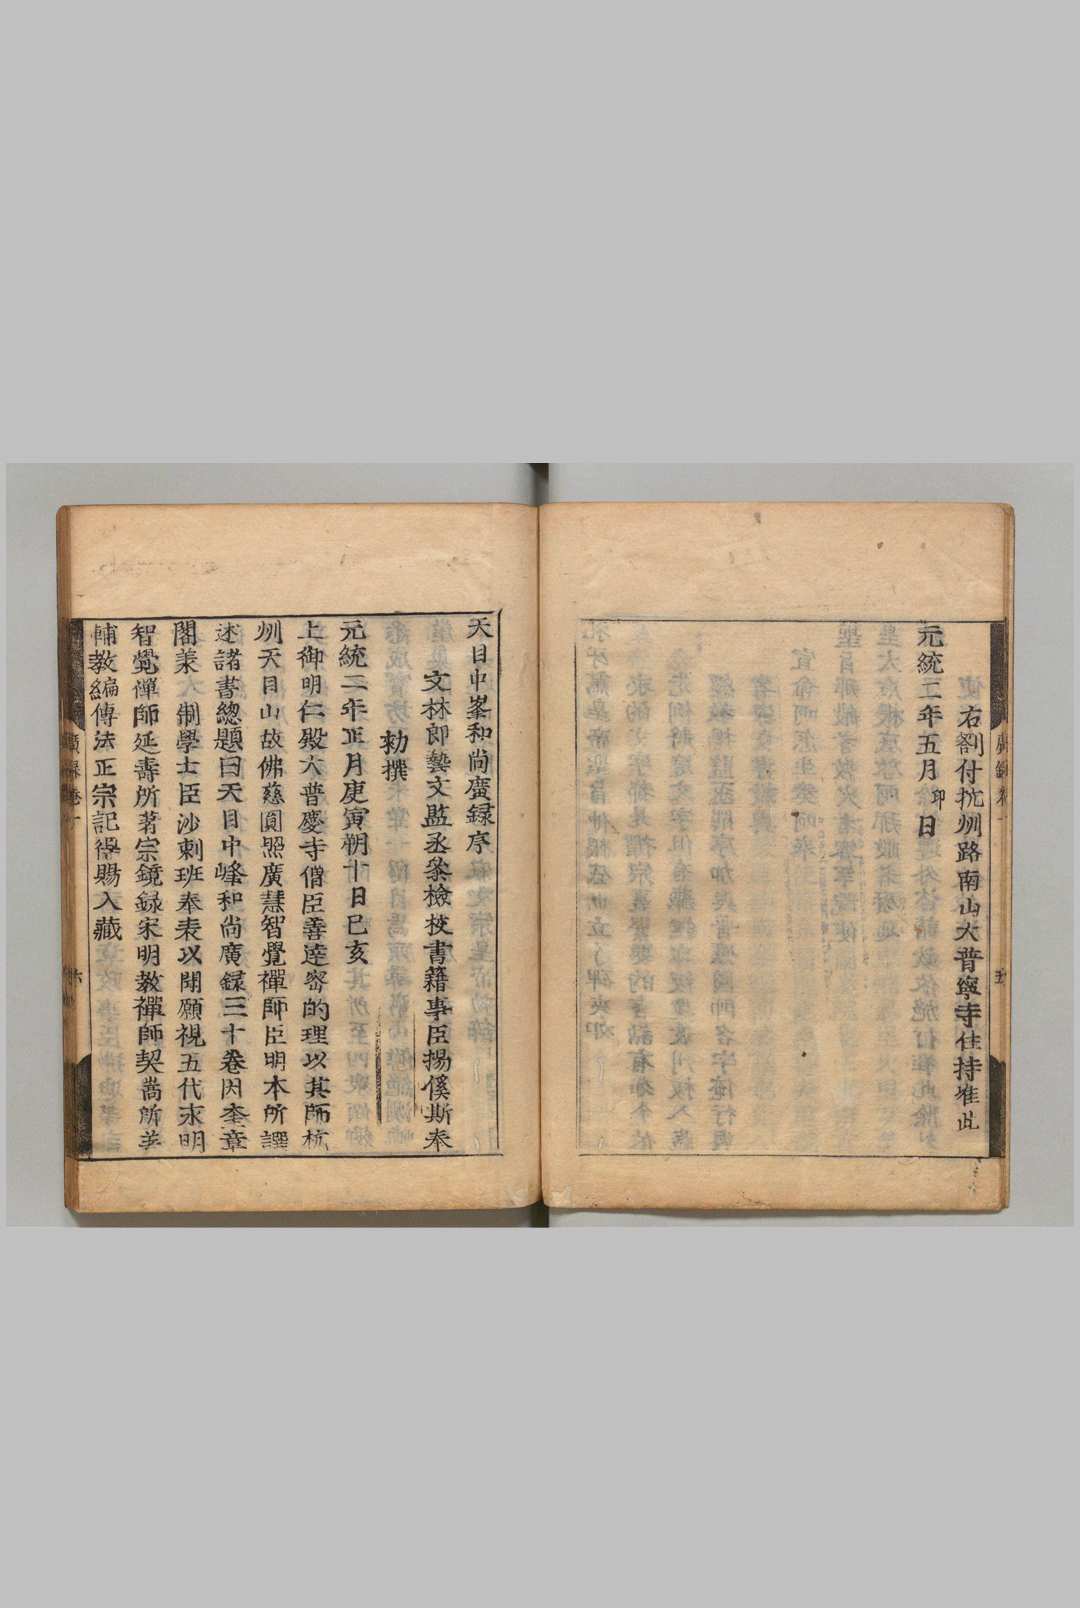 右劄付杭州路南山大普寧寺住持准此
元統二年五月 印 日
天目中峯和尚廣録序
文林郎藝文監丞叅檢校書籍事臣揚傒斯奉
勑撰
元統二年正月庚寅朔十日己亥
上御明仁殿大普慶寺僧臣善達密的理以其師杭
州天目山故佛慈圓照廣慧智覺禪師臣明本所譔
述諸書總題曰天目中峰和尚廣録三十卷因奎章
閣承制學士臣沙剌班奉表以聞願視五代永明
智覺禪師延壽所著宗鏡録宋明教禪師契嵩所著
輔教編傳法正宗記得賜入藏